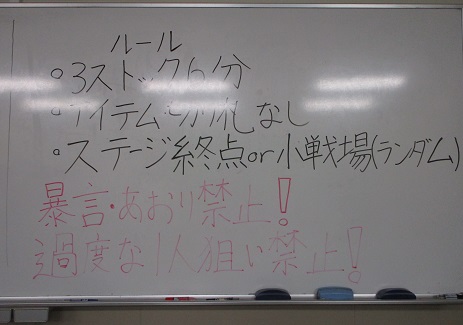 ルール
・3ストック6分
・アイテム・切札なし
・ステージ終点or小戦場(ランダム)
暴言・あおり禁止!
過度な1人狙い禁止!